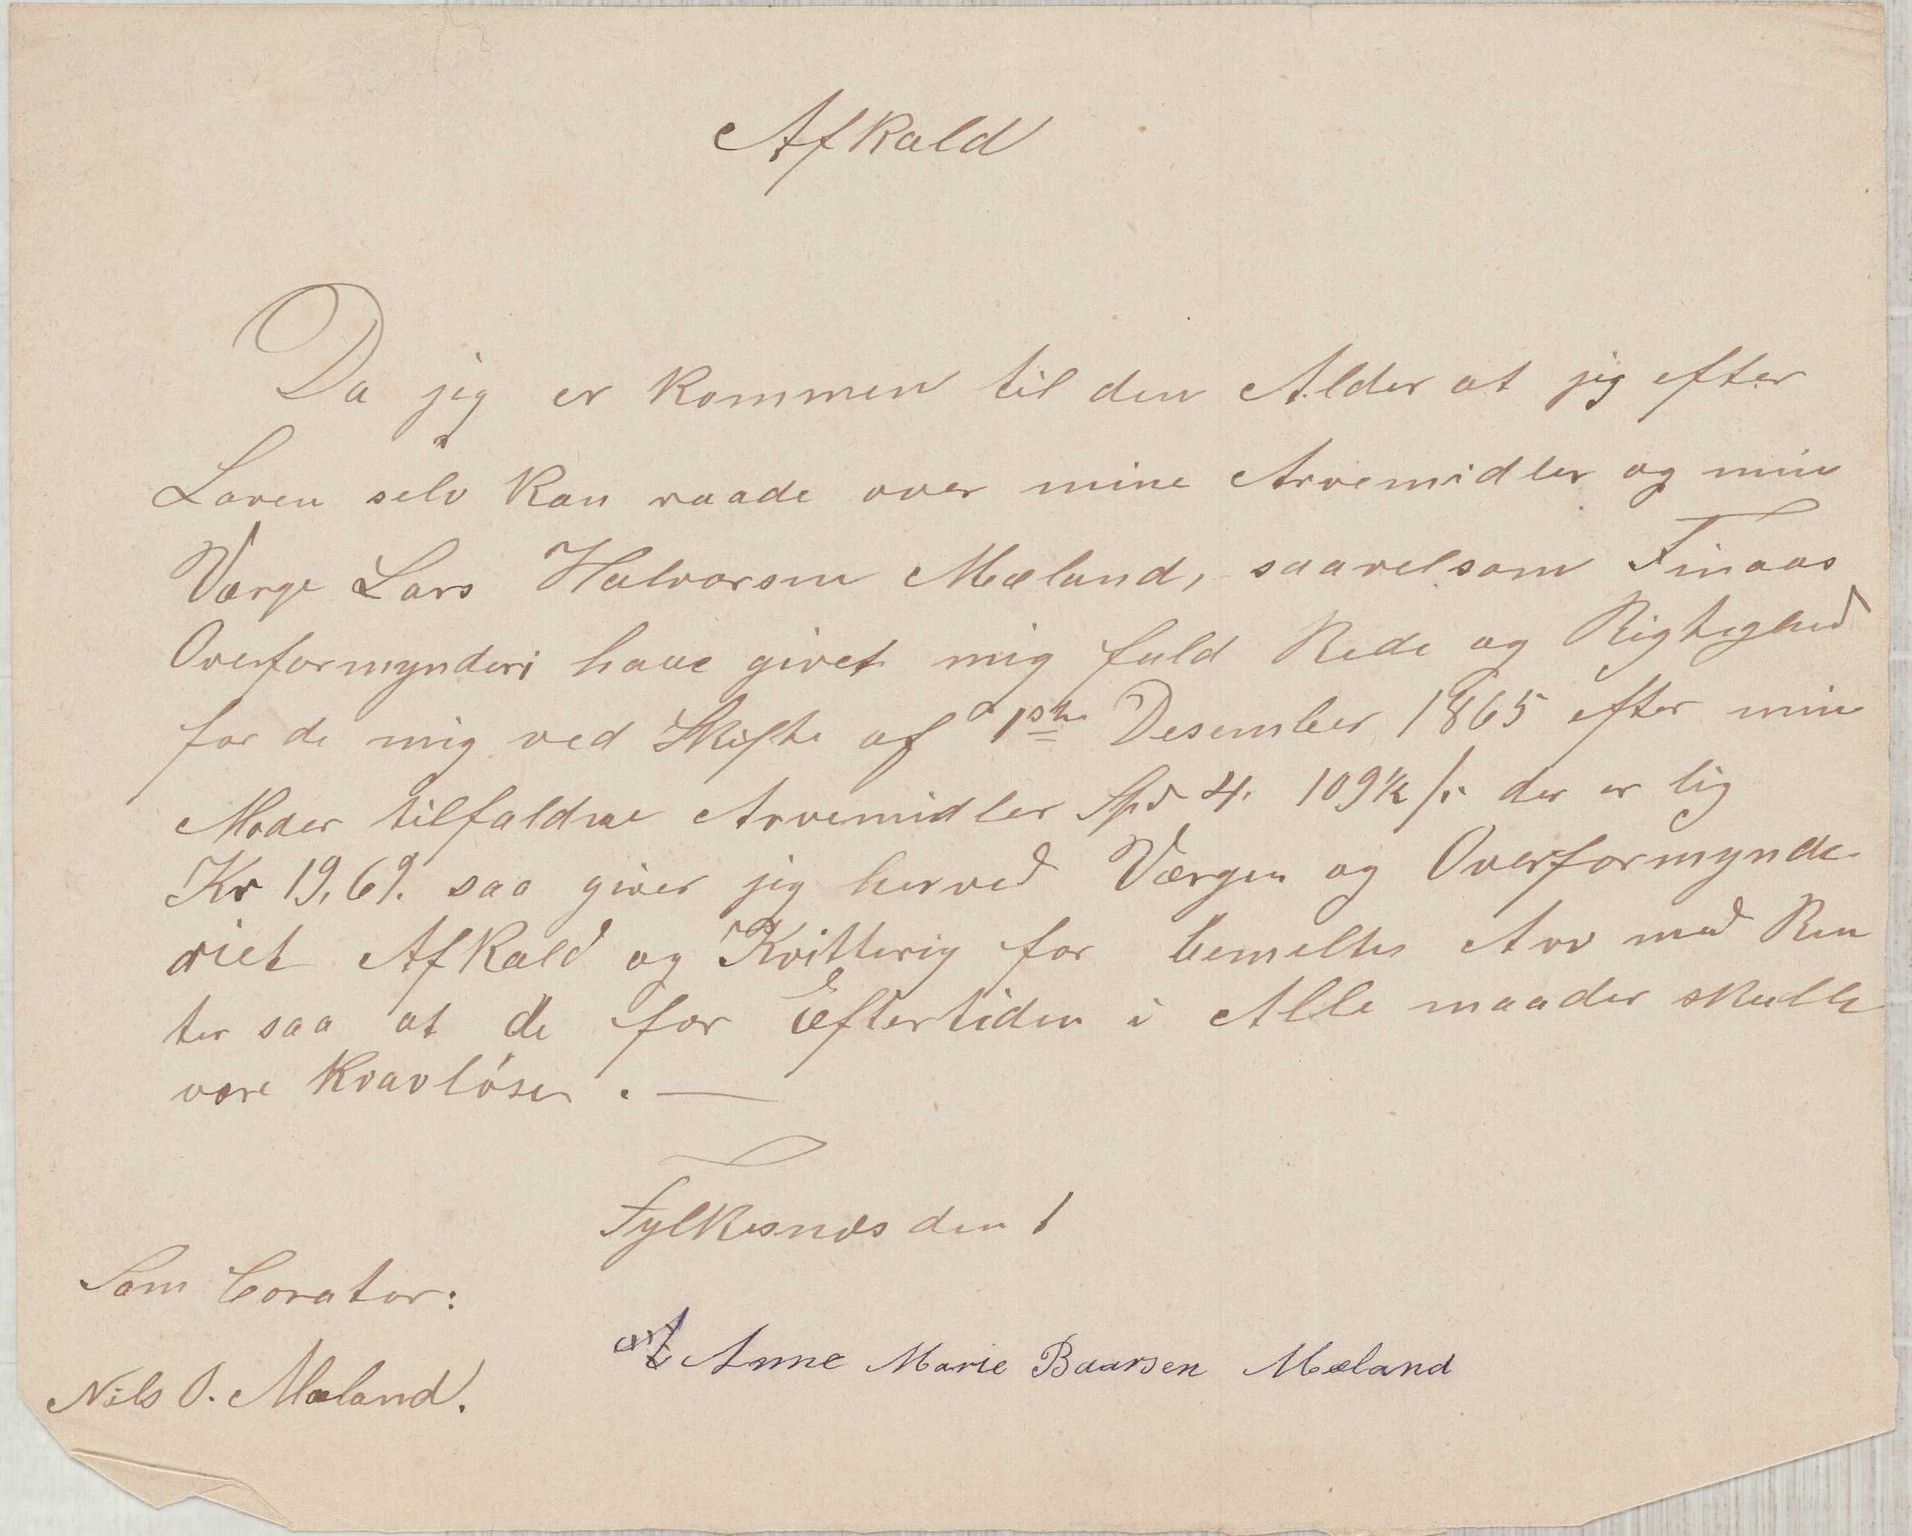 Afkald
Da jig er kommen til den Alder at jig efter
Loven selv kan raade over mine Arvemidler og min
Værge Lars Halvorsen Mæland, saavelsom Finaas
Overformynderi have givet mig fuld Rede og Rigtighed
for de mig ved Skifte af 1ste Desember 1865 efter min
Moder tilfaldne Arvemidler Spd 4. 109½ /: der er lig
Kr 19,69. saa giver jig herved Værgen og Overformynde
riet Afkald og Kvitterig for bemelte Arv med Ren
ter saa at de for Eftertiden i Alle maader skulle
være Kravløse. —
Fylkesnæs den 1
Som Corator:
Anne Marie Baarsen Mæland
Nils O. Mæland.